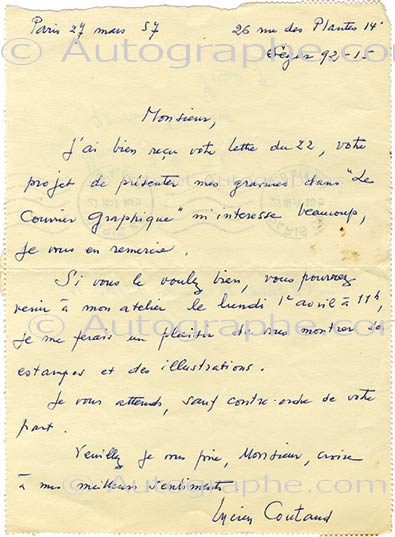 Paris 27 mars 57 26 rue des Plantes 14e
Ségur 92-15
© Autographe.com © Autographe.com
Monsieur,
J'ai bien reçu votre lettre du 22, votre
projet de présenter mes gravures dans "Le
Courrier graphique" m'interesse beaucoup,
je vous en remercie.
Si vous le voulez bien, vous pourrez
venir à mon atelier le lundi 1er avril à 11h,
© Autographe.com © Autographe.com
je me ferais un plaisir de vous montrer des
estampes et des illustrations.
Je vous attends, sauf contre-ordre de votre
part.
Veuillez je vous prie, Monsieur, croire
à mes meilleurs sentiments
© Autographe.com
Lucien Coutaud